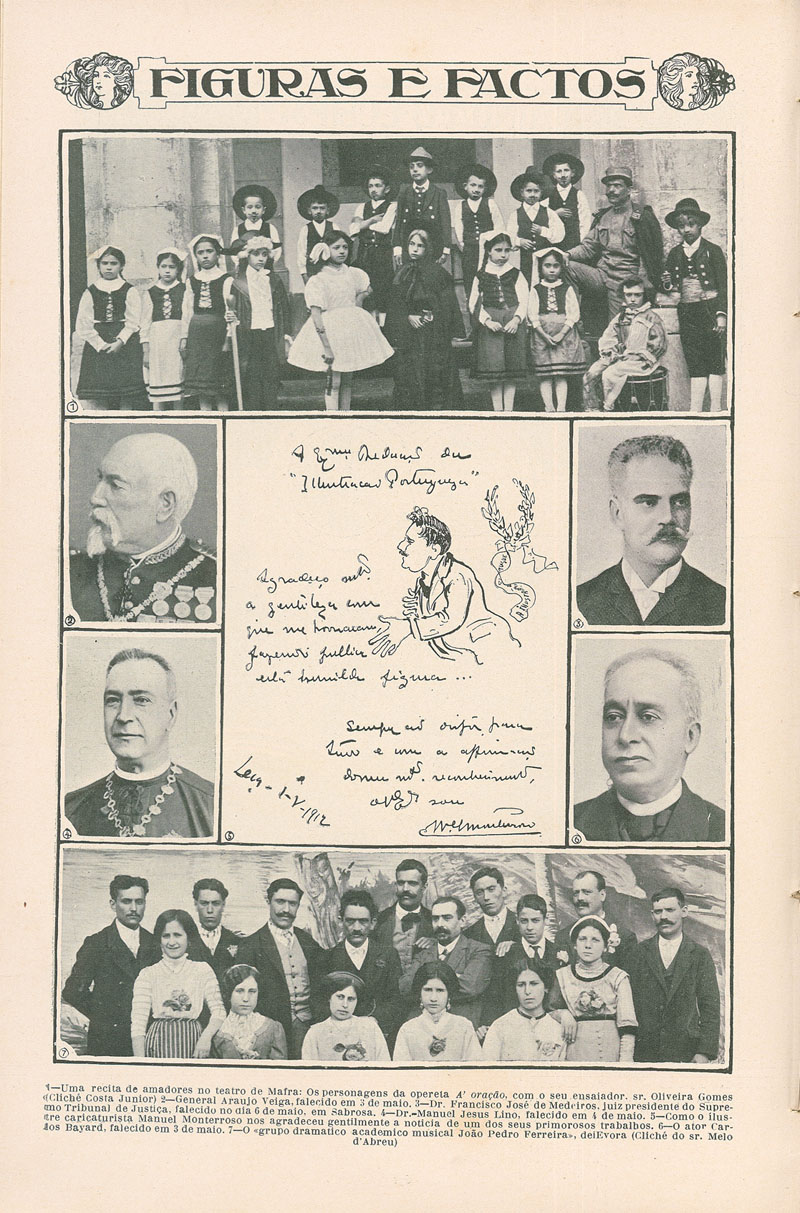 FIGURAS E FACTOS
1
A Ex.ma Redacção da
"Illustração Portugueza"
Agradeço m.to
a gentileza com
que me honraram,
fazendo publicar
esta humilde figura ...
Sempre ao dispor para
tudo e com a
Leça - 1-V-1912
sou
2
3
4
5
6
7
1—Uma recita de amadores no teatro de Mafra: Os personagens da opereta A' oração, com o seu ensaiador. sr. Oliveira Gomes
(Cliché Costa Junior) 2—General Araujo Veiga, falecido em 3 de maio. 3—Dr. Francisco José de Medeiros. juiz presidente do Supre-
mo Tribunal de Justiça, falecido no dia 6 de maio, em Sabrosa. 4—Dr.-Manuel Jesus Lino, falecido em 4 de maio. 5—Como o ilus-
tre caricaturista Manuel Monterroso nos agradeceu gentilmente a noticia de um dos seus primorosos trabalhos. 6—O ator Car-
los Bayard, falecido em 3 de maio. 7—O «grupo dramatico academico musical João Pedro Ferreira», de Evora (Cliché do sr. Melo
d'Abreu)